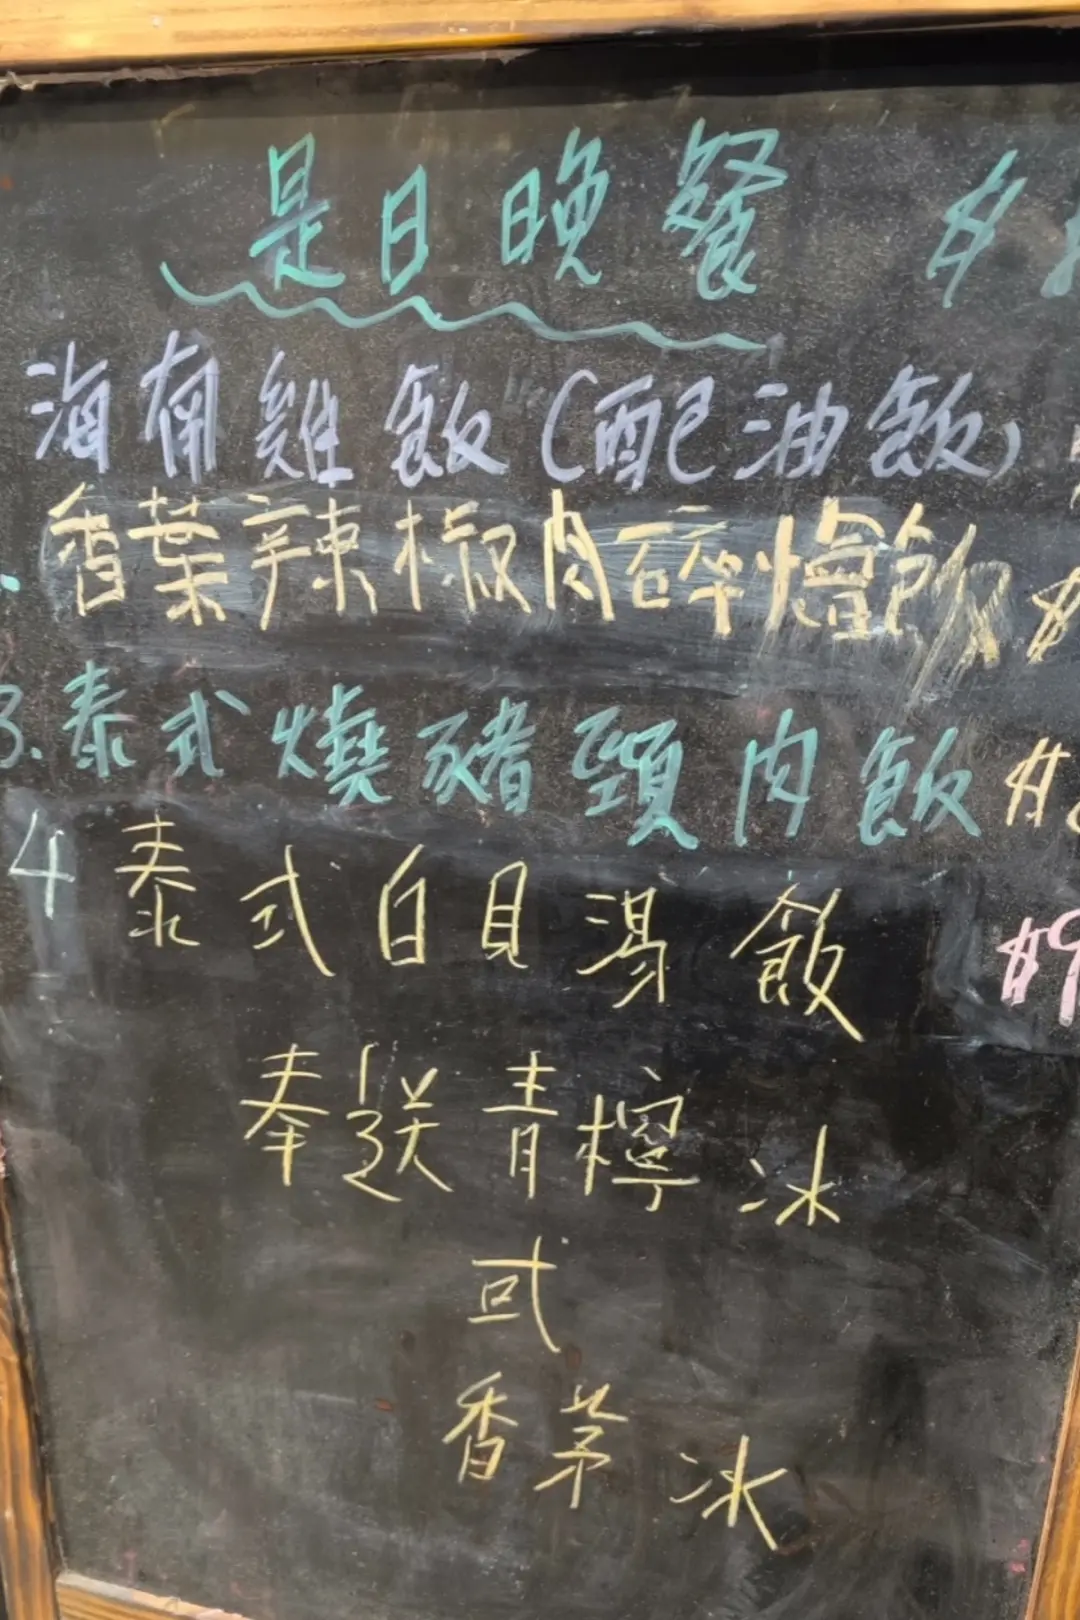 是日晚餐 #
海南雞飯(配油飯)
香葉辣椒肉碎燴飯 $
3.泰式燒豬頸肉飯 $
4 泰式白貝湯飯 $9
奉送青檸冰
或
香茅冰